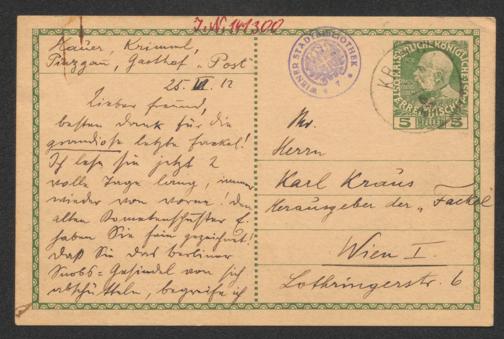 J.N. 141300
Hauer, Krimml,
Pinzgau, Gasthof "Post"
25. VI. 12
Lieber Freund,
besten Dank für die
grandiose letzte Fackel!
Ich lese sie jetzt 2
volle Tage lang, immer
wieder von vorne! Den
alten
haben Sie fein gezeichnet!
Daß Sie das berliner
Snobs=Gesindel von sich
abschütteln, begreife ich
WIENER STADTBIBLIOTHEK
KR
5 HELLER 5
Hr.
Herrn
Karl Kraus
Herausgeber der "Fackel
Wien I.
Lothringerstr. 6